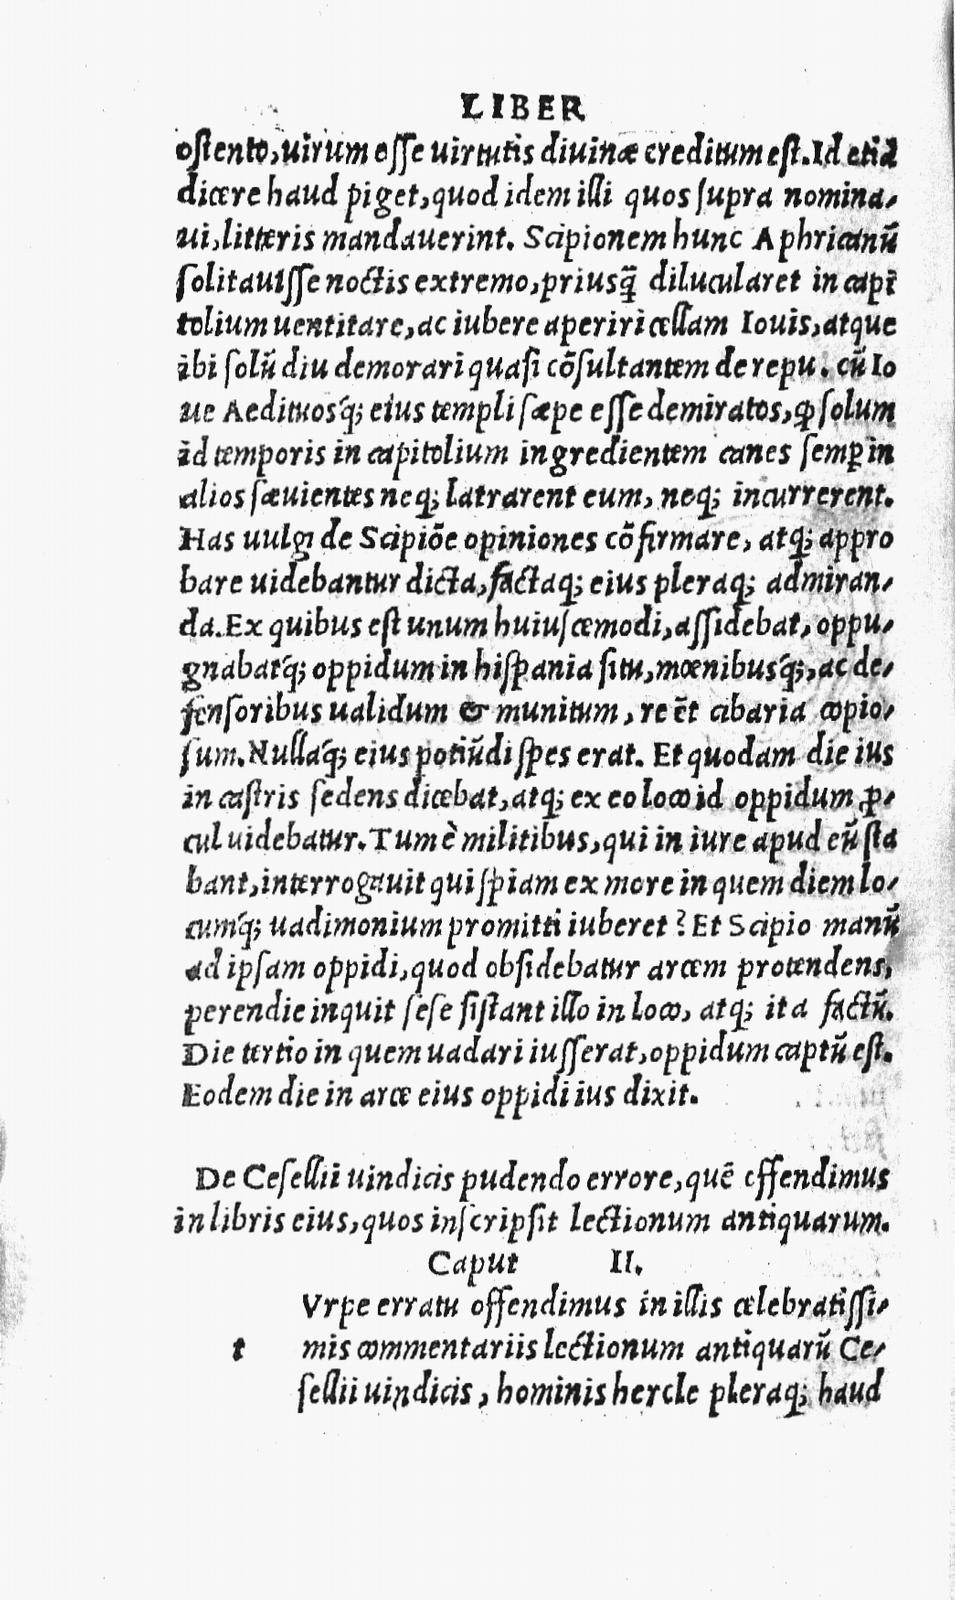 LIBER
ostento, uirum esse uirtutis diuinæ creditum est. Id etiã
dicere haud piget, quod idem illi quos supra nomina-
ui, litteris mandauerint. Scipionem hunc Aphricanũ
solitauisse noctis extremo, priusq̃ dilucularet in capi
tolium uentitare, ac iubere aperiri cellam Iouis, atque
ibi solũ diu demorari quasi cõsultantem de repu. cũ Io
ue Aedituosq́; eius templi sæpe esse demiratos, ꝙ solum
id temporis in capitolium ingredientem canes semꝑ in
alios sæuientes neq; latrarent eum, neq; incurrerent.
Has uulgi de Scipiõe opiniones cõfirmare, atq; appro
bare uidebantur dicta, factaq; eius pleraq; admiran-
da. Ex quibus est unum huiuscemodi, assidebat, oppu-
gnabatq́; oppidum in hispania situ, mœnibusq́;, ac de-
fensoribus ualidum & munitum, re ẽt cibaria copio-
sum. Nullaq́; eius potiũdi spes erat. Et quodam die ius
in castris sedens dicebat, atq; ex eo loco id oppidum ꝓ-
cul uidebatur. Tum è militibus, qui in iure apud eũ sta
bant, interrogauit quispiam ex more in quem diem lo-
cumq́; uadimonium promitti iuberet? Et Scipio manũ
ad ipsam oppidi, quod obsidebatur arcem protendens,
perendie inquit sese sistant illo in loco, atq; ita factũ.
Die tertio in quem uadari iusserat, oppidum captũ est.
Eodem die in arce eius oppidi ius dixit.
De Cesellii uindicis pudendo errore, quẽ effendimus
in libris eius, quos inscripsit lectionum antiquarum.
Caput II.
Vrpe erratu offendimus in illis celebratissi-
t mis commentariis lectionum antiquarũ Ce-
sellii uindicis, hominis hercle pleraq; haud